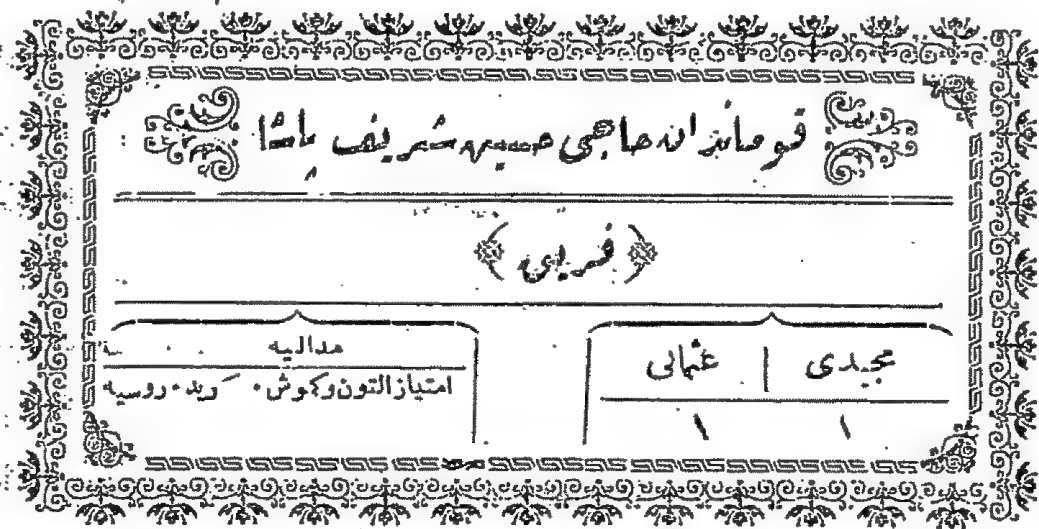 قوماندان حاجی حسین شریف پاشا
﴿ فریق ﴾
مجیدی | عثمانی
١ ١
مدالیه
امتیاز التون وکموش٠ کرید٠ روسیه